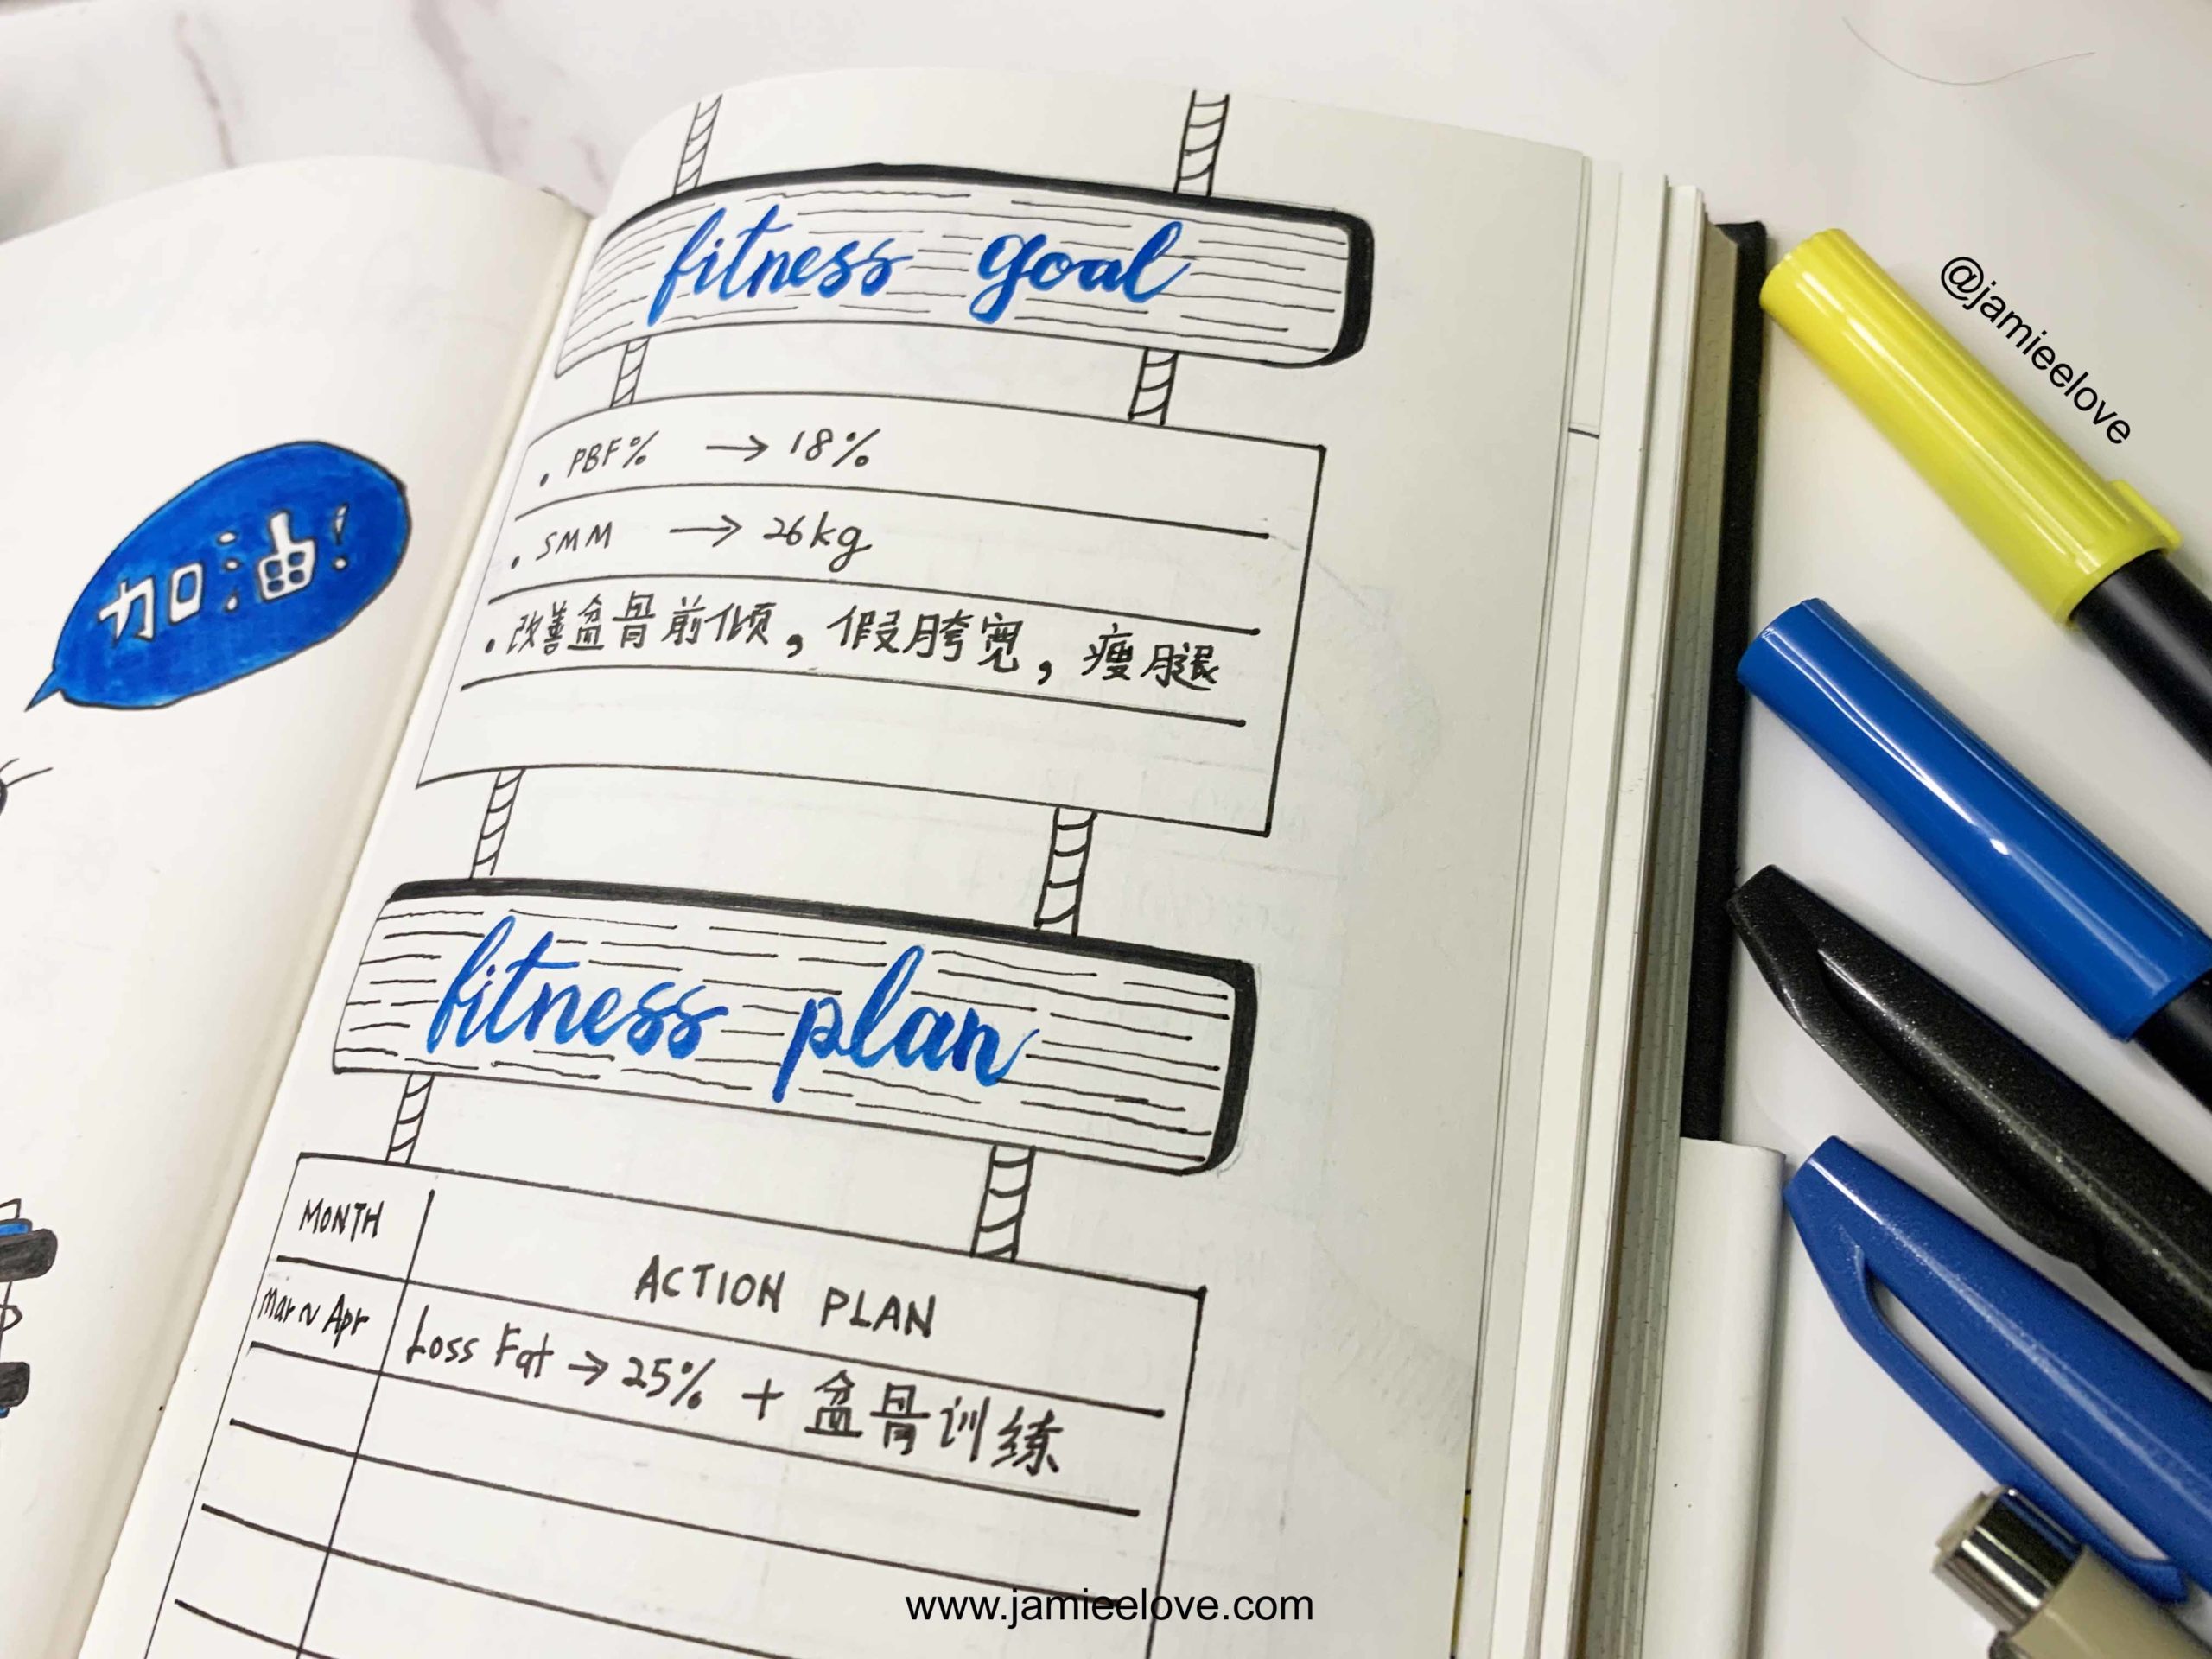 加油!
fitness goal
. PBF% → 18%
. SMM → 26kg
. 改善盆骨前倾, 假胯宽, 瘦腿
fitness plan
MONTH
ACTION PLAN
Mar ~ Apr
Loss Fat → 25% + 盆骨训练
@jamieelove
www.jamieelove.com